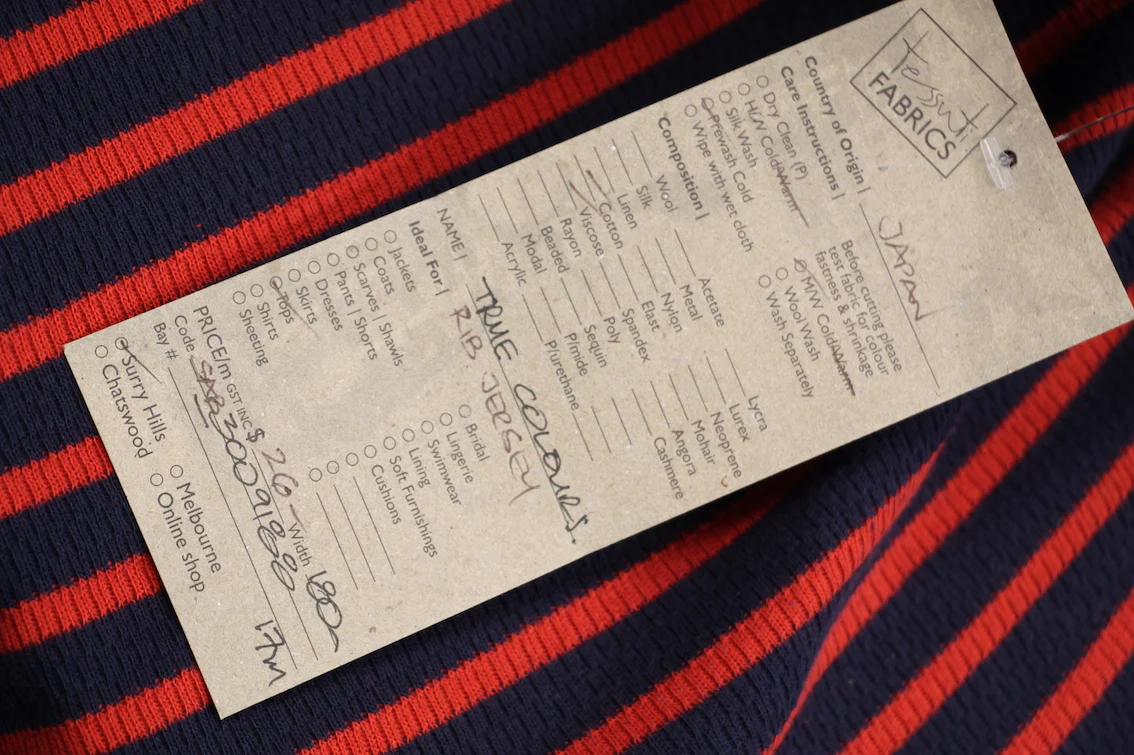 tessuti
FABRICS
Country of Origin | JAPAN
Care Instructions |
Dry Clean (P)
H/W Cold/Warm
Silk Wash
Prewash Cold
Wipe with wet cloth
Before cutting please
test fabric for colour
fastness & shrinkage
M/W Cold/Warm
Wool Wash
Wash Separately
Composition |
Wool
Silk
Linen
Cotton
Viscose
Rayon
Beaded
Modal
Acrylic
Acetate
Metal
Nylon
Elast
Spandex
Poly
Sequin
P/mide
P/urethane
Lycra
Lurex
Neoprene
Mohair
Angora
Cashmere
NAME | TRUE COLOURS.
RIB JERSEY
Ideal For |
Jackets
Coats
Scarves | Shawls
Pants | Shorts
Dresses
Skirts
Tops
Shirts
Sheeting
Bridal
Lingerie
Swimwear
Lining
Soft Furnishings
Cushions
PRICE/m GST INC $ 260 Width 180
Code
Bay # 17m
Surry Hills
Chatswood
Melbourne
Online shop